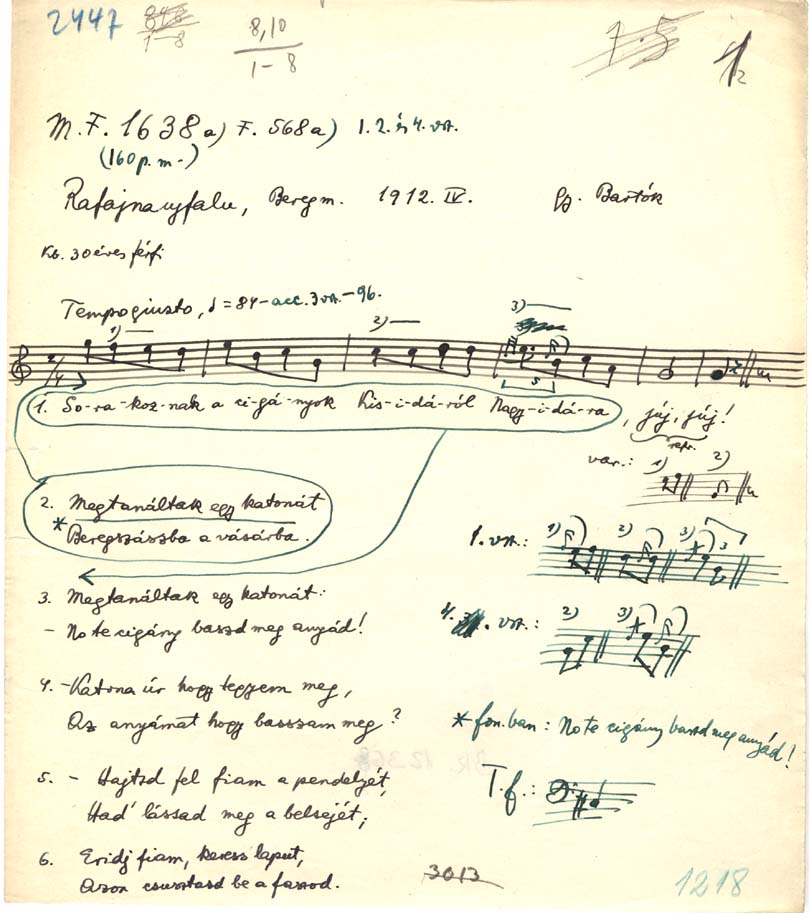 2447
848
1-8
8,10
1-8
7.5
1/2
M.F. 1638a) F. 568a) 1. 2. és 4. vsz.
(160 p.m.)
Rafajnaujfalu, Beregm. 1912. IV. Gy. Bartók
Kb. 30 éves férfi
Tempo giusto, = 84 - acc. 3 vsz. - 96.
1) 2) 3)
2/4
5
1. So-ra-koz-nak a ci-gá-nyok Kis-i-dá-ról Nagy-i-dá-ra, júj, júj!
refr.
var.: 1) 2)
2. Megtanáltak egy katonát
* Beregszászba a vásárba.
1. vsz.: 1) 2) 3)
3
3. Megtanáltak egy katonát:
- No te cigány baszd meg anyád!
4. vsz.: 2) 3)
4. - Katona úr hogy tegyem meg,
Az anyámat hogy basszam meg?
* fon.ban: No te cigány baszd meg anyád!
5. - Hajtsd fel fiam a pendelyét,
Had' lássad meg a belsejét;
T.f.:
6. Eridj fiam, keress laput,
Azon csusztasd be a faszod.
3013
1218